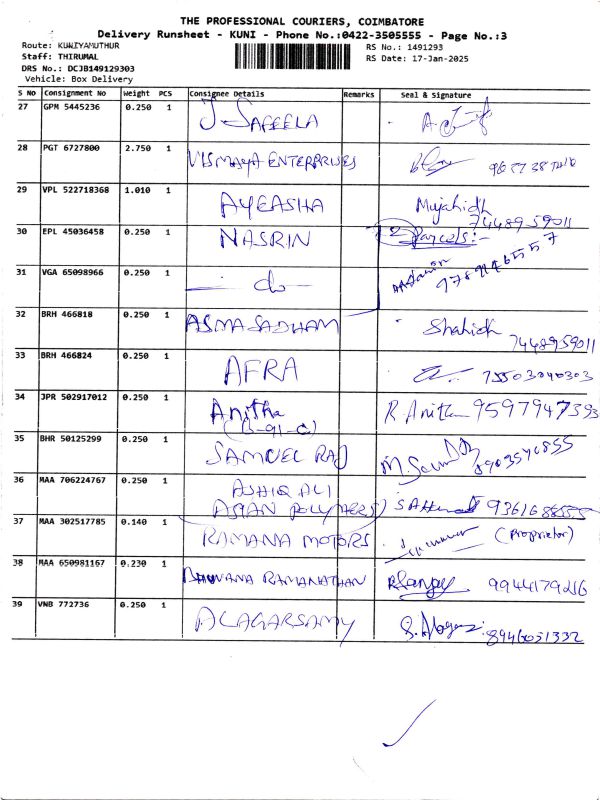 THE PROFESSIONAL COURIERS, COIMBATORE
Delivery Runsheet - KUNI - Phone No.:0422-3505555 - Page No.:3
Route: KUNIYAMUTHUR
RS No.: 1491293
Staff: THIRUMAL
RS Date: 17-Jan-2025
DRS No.: DCJB149129303
Vehicle: Box Delivery
S No Consignment No Weight PCS Consignee Details Remarks Seal & Signature
27 GPM 5445236 0.250 1 J. SAFEELA
28 PGT 6727800 2.750 1 VISMAYA ENTERPRISES
29 VPL 522718368 1.010 1 AYEASHA Mujahidh
7448959011
30 EPL 45036458 0.250 1 NASRIN 2 Parcels:-
31 VGA 65098966 0.250 1 - do -
32 BRH 466818 0.250 1 ASMA SADHAM Shahidh
7448959011
33 BRH 466824 0.250 1 AFRA
34 JPR 502917012 0.250 1 Anitha R. Anitha 9597947393
(B-91-C)
35 BHR 50125299 0.250 1 SAMUEL RAJ
36 MAA 706224767 0.250 1 ASHIQ ALI
ASIAN POLYMERS)
37 MAA 302517785 0.140 1 RAMANA MOTORS (Proprietor)
38 MAA 650981167 0.230 1 BHUVANA RAMANATHAN
39 VNB 772736 0.250 1 ALAGARSAMY 8946051332